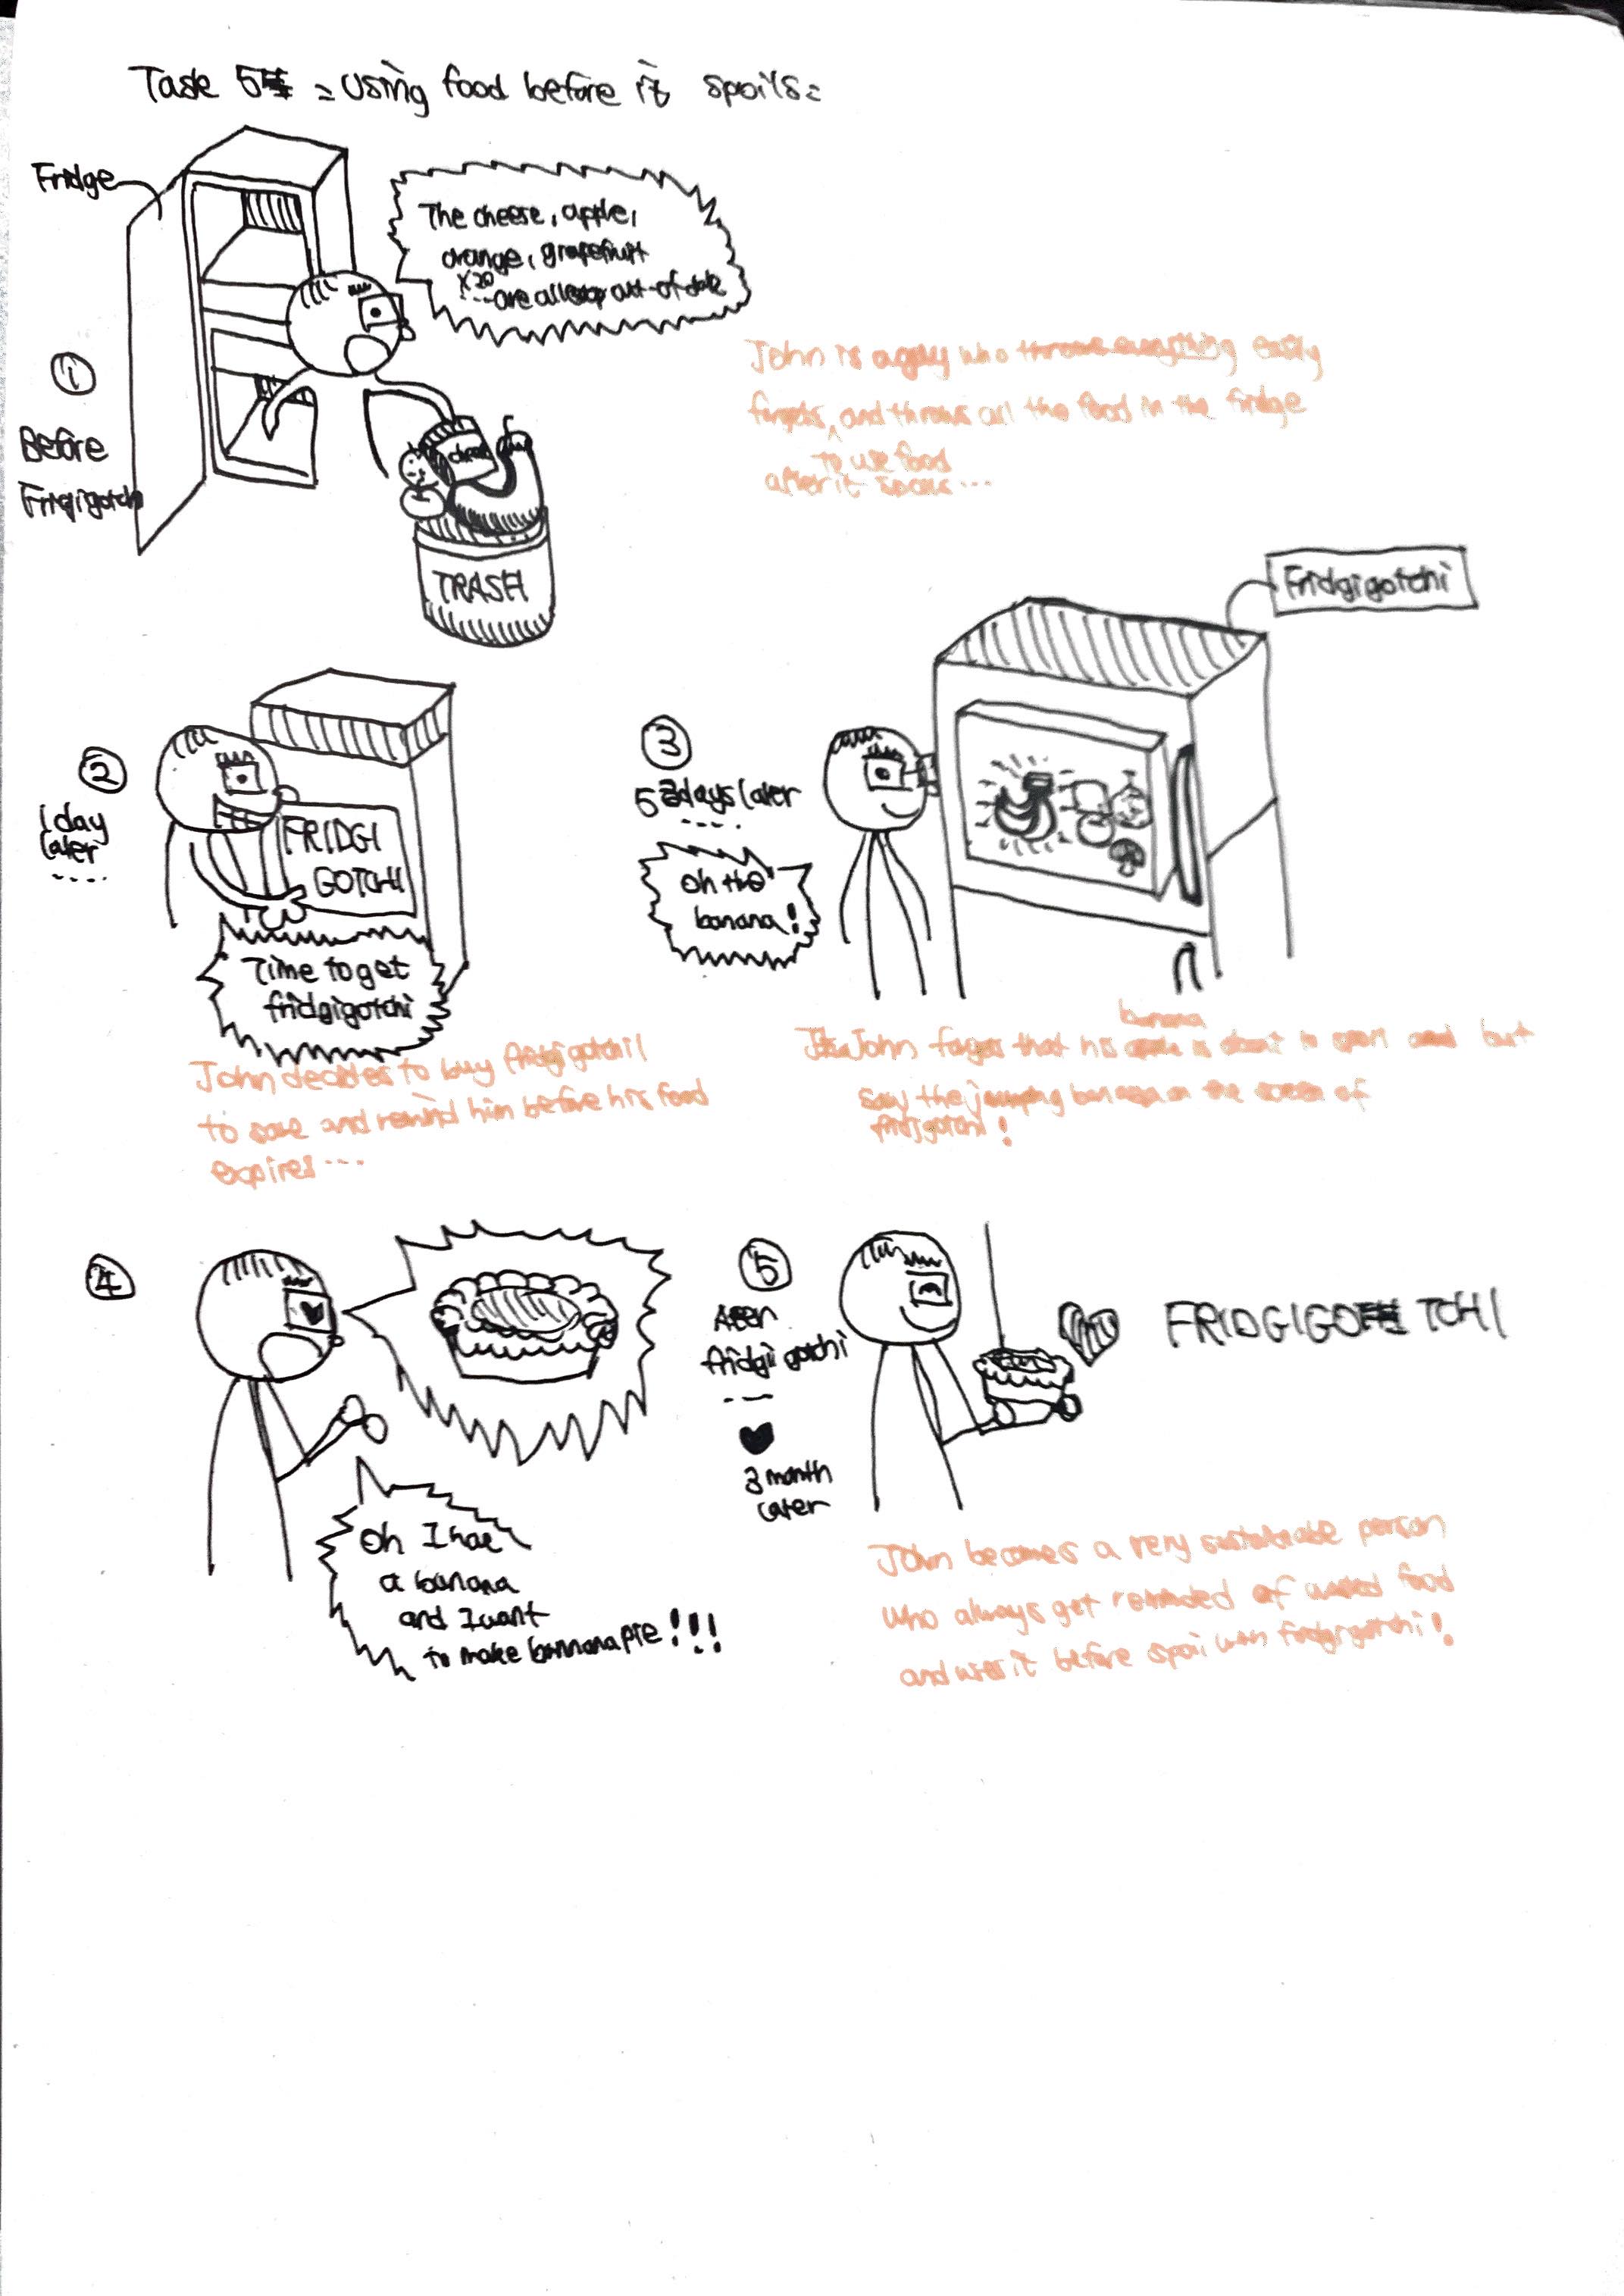 Task 5 = Using food before it spoils =
Fridge
The cheese, apple,
orange, grapefruit
x20
... are all out-of-date
①
Before
Fridgigotchi
TRASH
John is a guy who throws everything easily
forgets, and throws all the food in the fridge
to use food
after it spoils ...
Fridgigotchi
②
1 day
later
....
FRIDGI
GOTCHI
Time to get
fridgigotchi
John decides to buy fridgigotchi
to save and remind him before his food
expires ...
③
5 days later
....
Oh the
banana!
banana
John forgets that his is about to spoil but
saw the jumping banana on the screen of
fridgigotchi!
④
Oh I have
a banana
and I want
to make bannana pie!!!
⑤
After
fridgi gotchi
3 month
later
FRIDGIGO TCHI
John becomes a very sustainable person
who always get reminded of wasted food
and uses it before spoil with fridgigotchi!